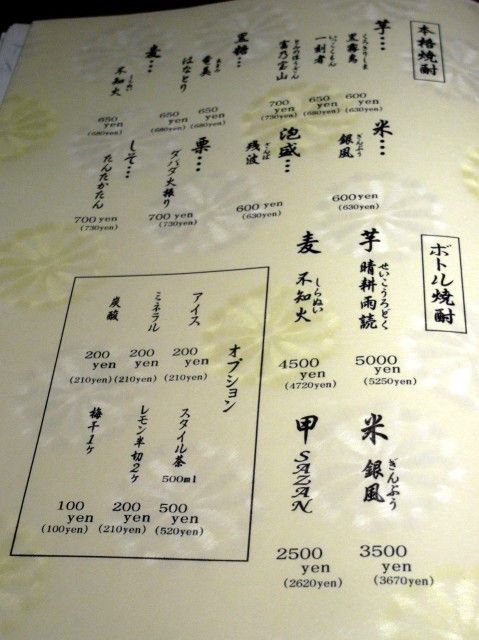 本格焼酎
芋…
黒霧島
くろきりしま
600 yen
(630yen)
一刻者
いっこくもん
650 yen
(680yen)
富乃宝山
とみのほうざん
700 yen
(730yen)
黒糖…
奄美
あまみ
650 yen
(680yen)
はなとり
650 yen
(680yen)
麦…
不知火
しらぬい
650 yen
(680yen)
米…
銀風
ぎんぷう
600 yen
(630yen)
泡盛…
残波
ざんぱ
600 yen
(630yen)
栗…
ダバダ火振り
700 yen
(730yen)
しそ…
たんたかたん
700 yen
(730yen)
ボトル焼酎
芋
晴耕雨読
せいこうろどく
5000 yen
(5250yen)
麦
不知火
しらぬい
4500 yen
(4720yen)
米
銀風
ぎんぷう
3500 yen
(3670yen)
甲
SAZAN
2500 yen
(2620yen)
オプション
アイス
200 yen
(210yen)
ミネラル
200 yen
(210yen)
炭酸
200 yen
(210yen)
スタイル茶
500ml
500 yen
(520yen)
レモン半切2ヶ
200 yen
(210yen)
梅干1ヶ
100 yen
(100yen)